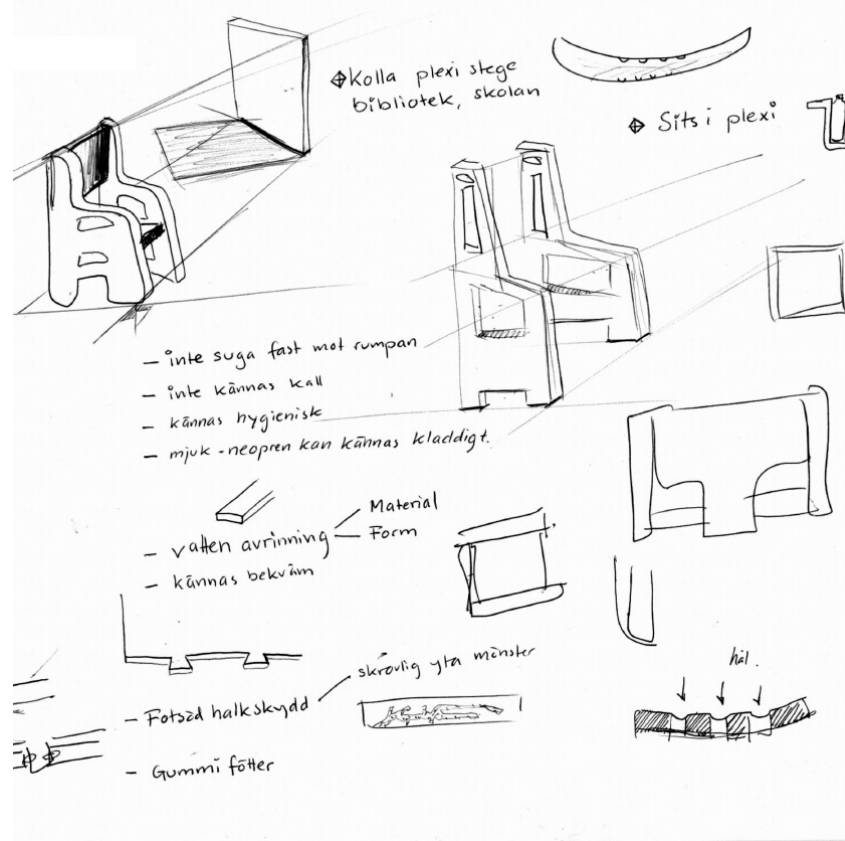 Kolla plexi stege
bibliotek, skolan
Sits i plexi
– inte suga fast mot rumpan
– inte kännas kall
– kännas hygienisk
– mjuk - neopren kan kännas kladdigt.
– vatten avrinning
Material
Form
– kännas bekväm
skrovlig yta mönster
– Fotstöd halkskydd
– Gummi fötter
hål.